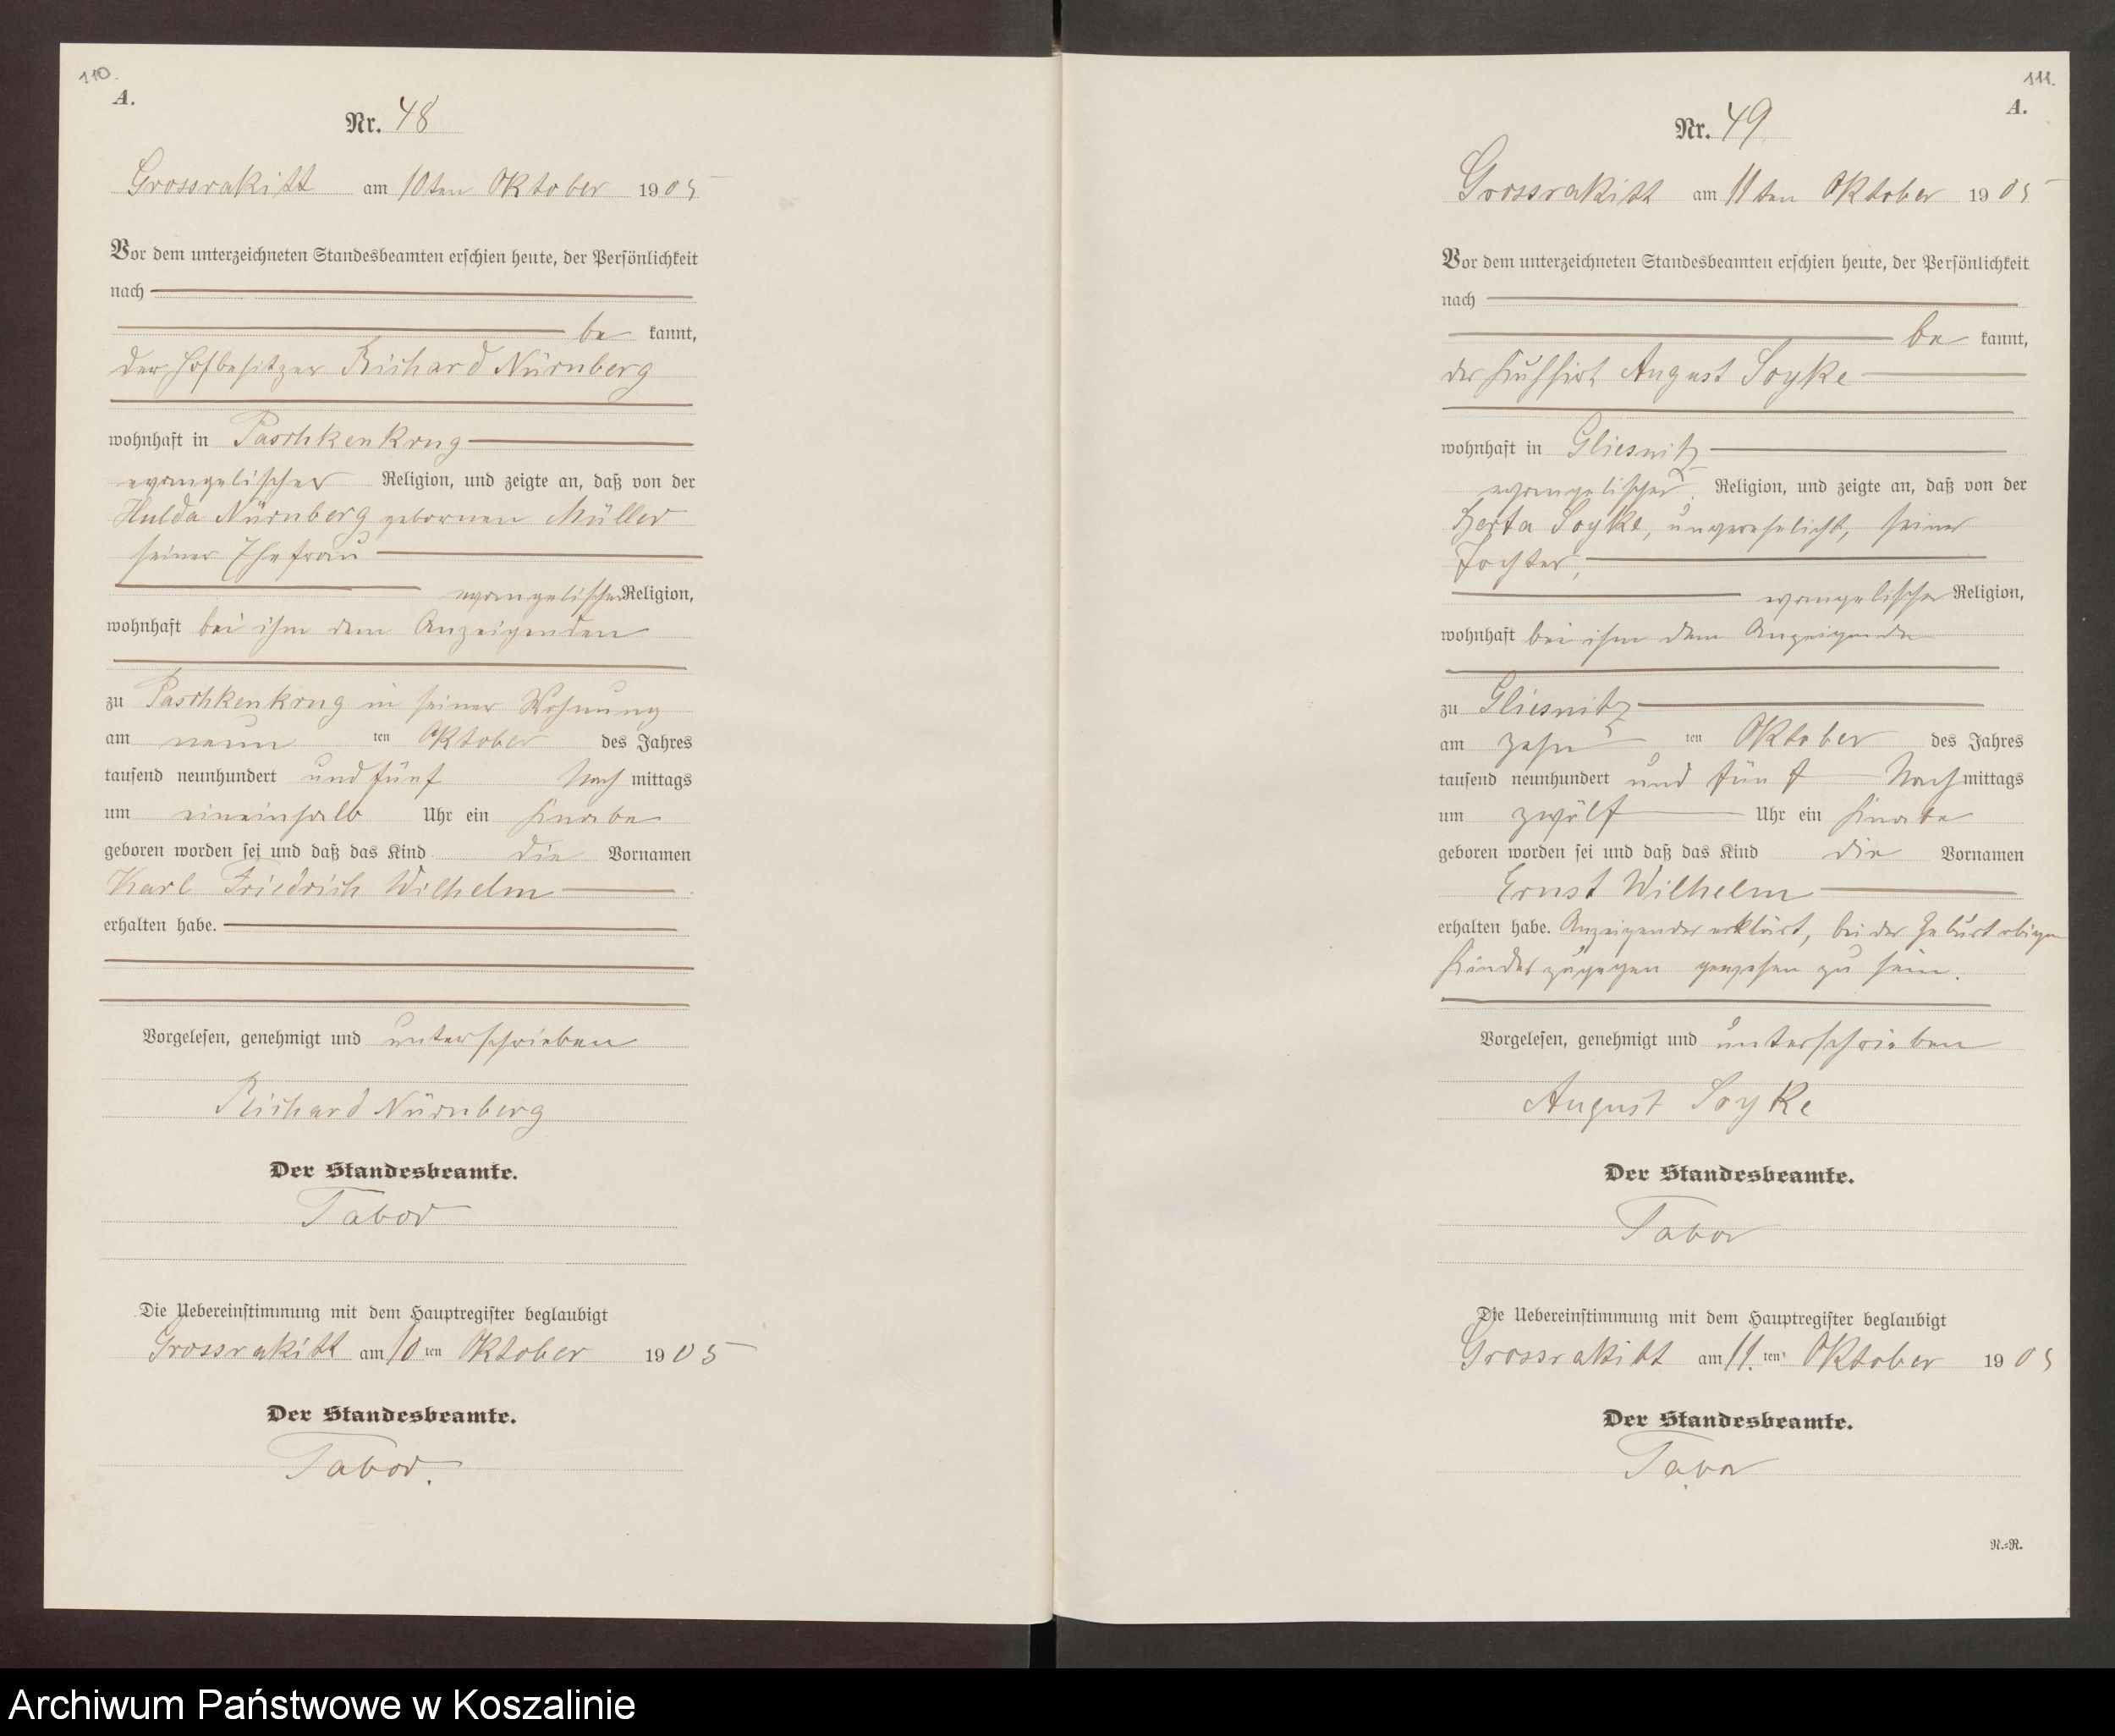 110.
A.
Nr. 48
Grossrakitt am 10ten Oktober 1905
Vor dem unterzeichneten Standesbeamten erschien heute, der Persönlichkeit
nach
be kannt,
der Hofbesitzer Richard Nürnberg
wohnhaft in Paschkenkrug
evangelischer Religion, und zeigte an, daß von der
Hulda Nürnberg gebornen Müller
seiner Ehefrau
evangelischer Religion,
wohnhaft bei ihm dem Anzeigenden
zu Paschkenkrug in seiner Wohnung
am neun ten Oktober des Jahres
tausend neunhundert und fünf Nach mittags
um eineinhalb Uhr ein Knabe
geboren worden sei und daß das Kind die Vornamen
Karl Friedrich Wilhelm
erhalten habe.
Vorgelesen, genehmigt und unterschrieben
Richard Nürnberg
Der Standesbeamte.
Tabor
Die Uebereinstimmung mit dem Hauptregister beglaubigt
Grossrakitt am 10 ten Oktober 1905
Der Standesbeamte.
Tabor.
111.
A.
Nr. 49
Grossrakitt am 11ten Oktober 1905
Vor dem unterzeichneten Standesbeamten erschien heute, der Persönlichkeit
nach
be kannt,
der Kuhhirt August Soyke
wohnhaft in Gliesnitz
evangelischer Religion, und zeigte an, daß von der
Herta Soyke, unverehelicht, seiner
Tochter,
evangelischer Religion,
wohnhaft bei ihm dem Anzeigenden
zu Gliesnitz
am zehn ten Oktober des Jahres
tausend neunhundert und fünf Nach mittags
um zwölf Uhr ein Knabe
geboren worden sei und daß das Kind die Vornamen
Ernst Wilhelm
erhalten habe. Anzeigender erklärt, bei der Geburt obigen
Kindes zugegen gewesen zu sein.
Vorgelesen, genehmigt und unterschrieben
August Soyke
Der Standesbeamte.
Tabor
Die Uebereinstimmung mit dem Hauptregister beglaubigt
Grossrakitt am 11. ten Oktober 1905
Der Standesbeamte.
Tabor
N.=R.
Archiwum Państwowe w Koszalinie